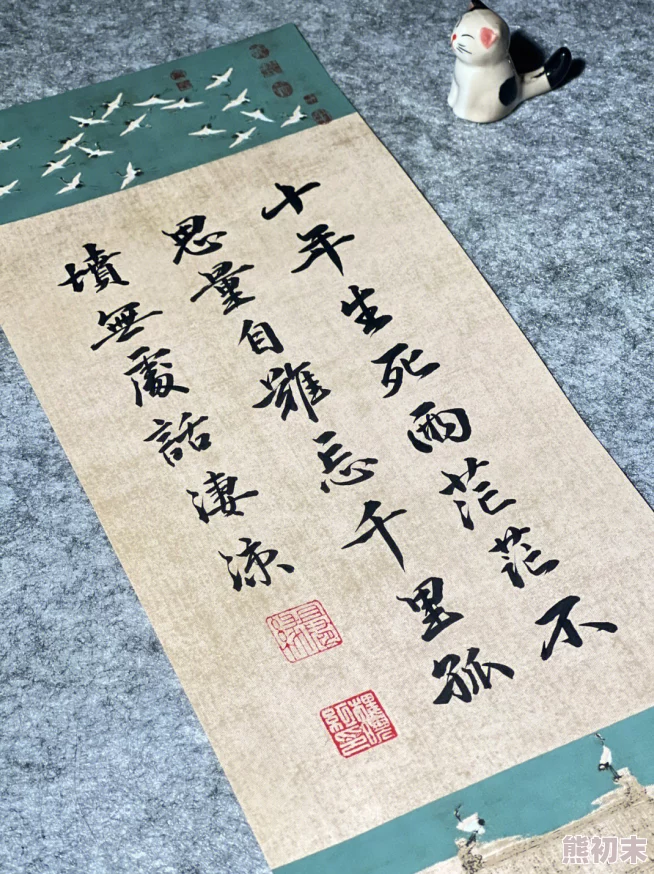 十年生死兩茫茫不
思量自難忘千里孤
墳無處話淒涼
熊初末